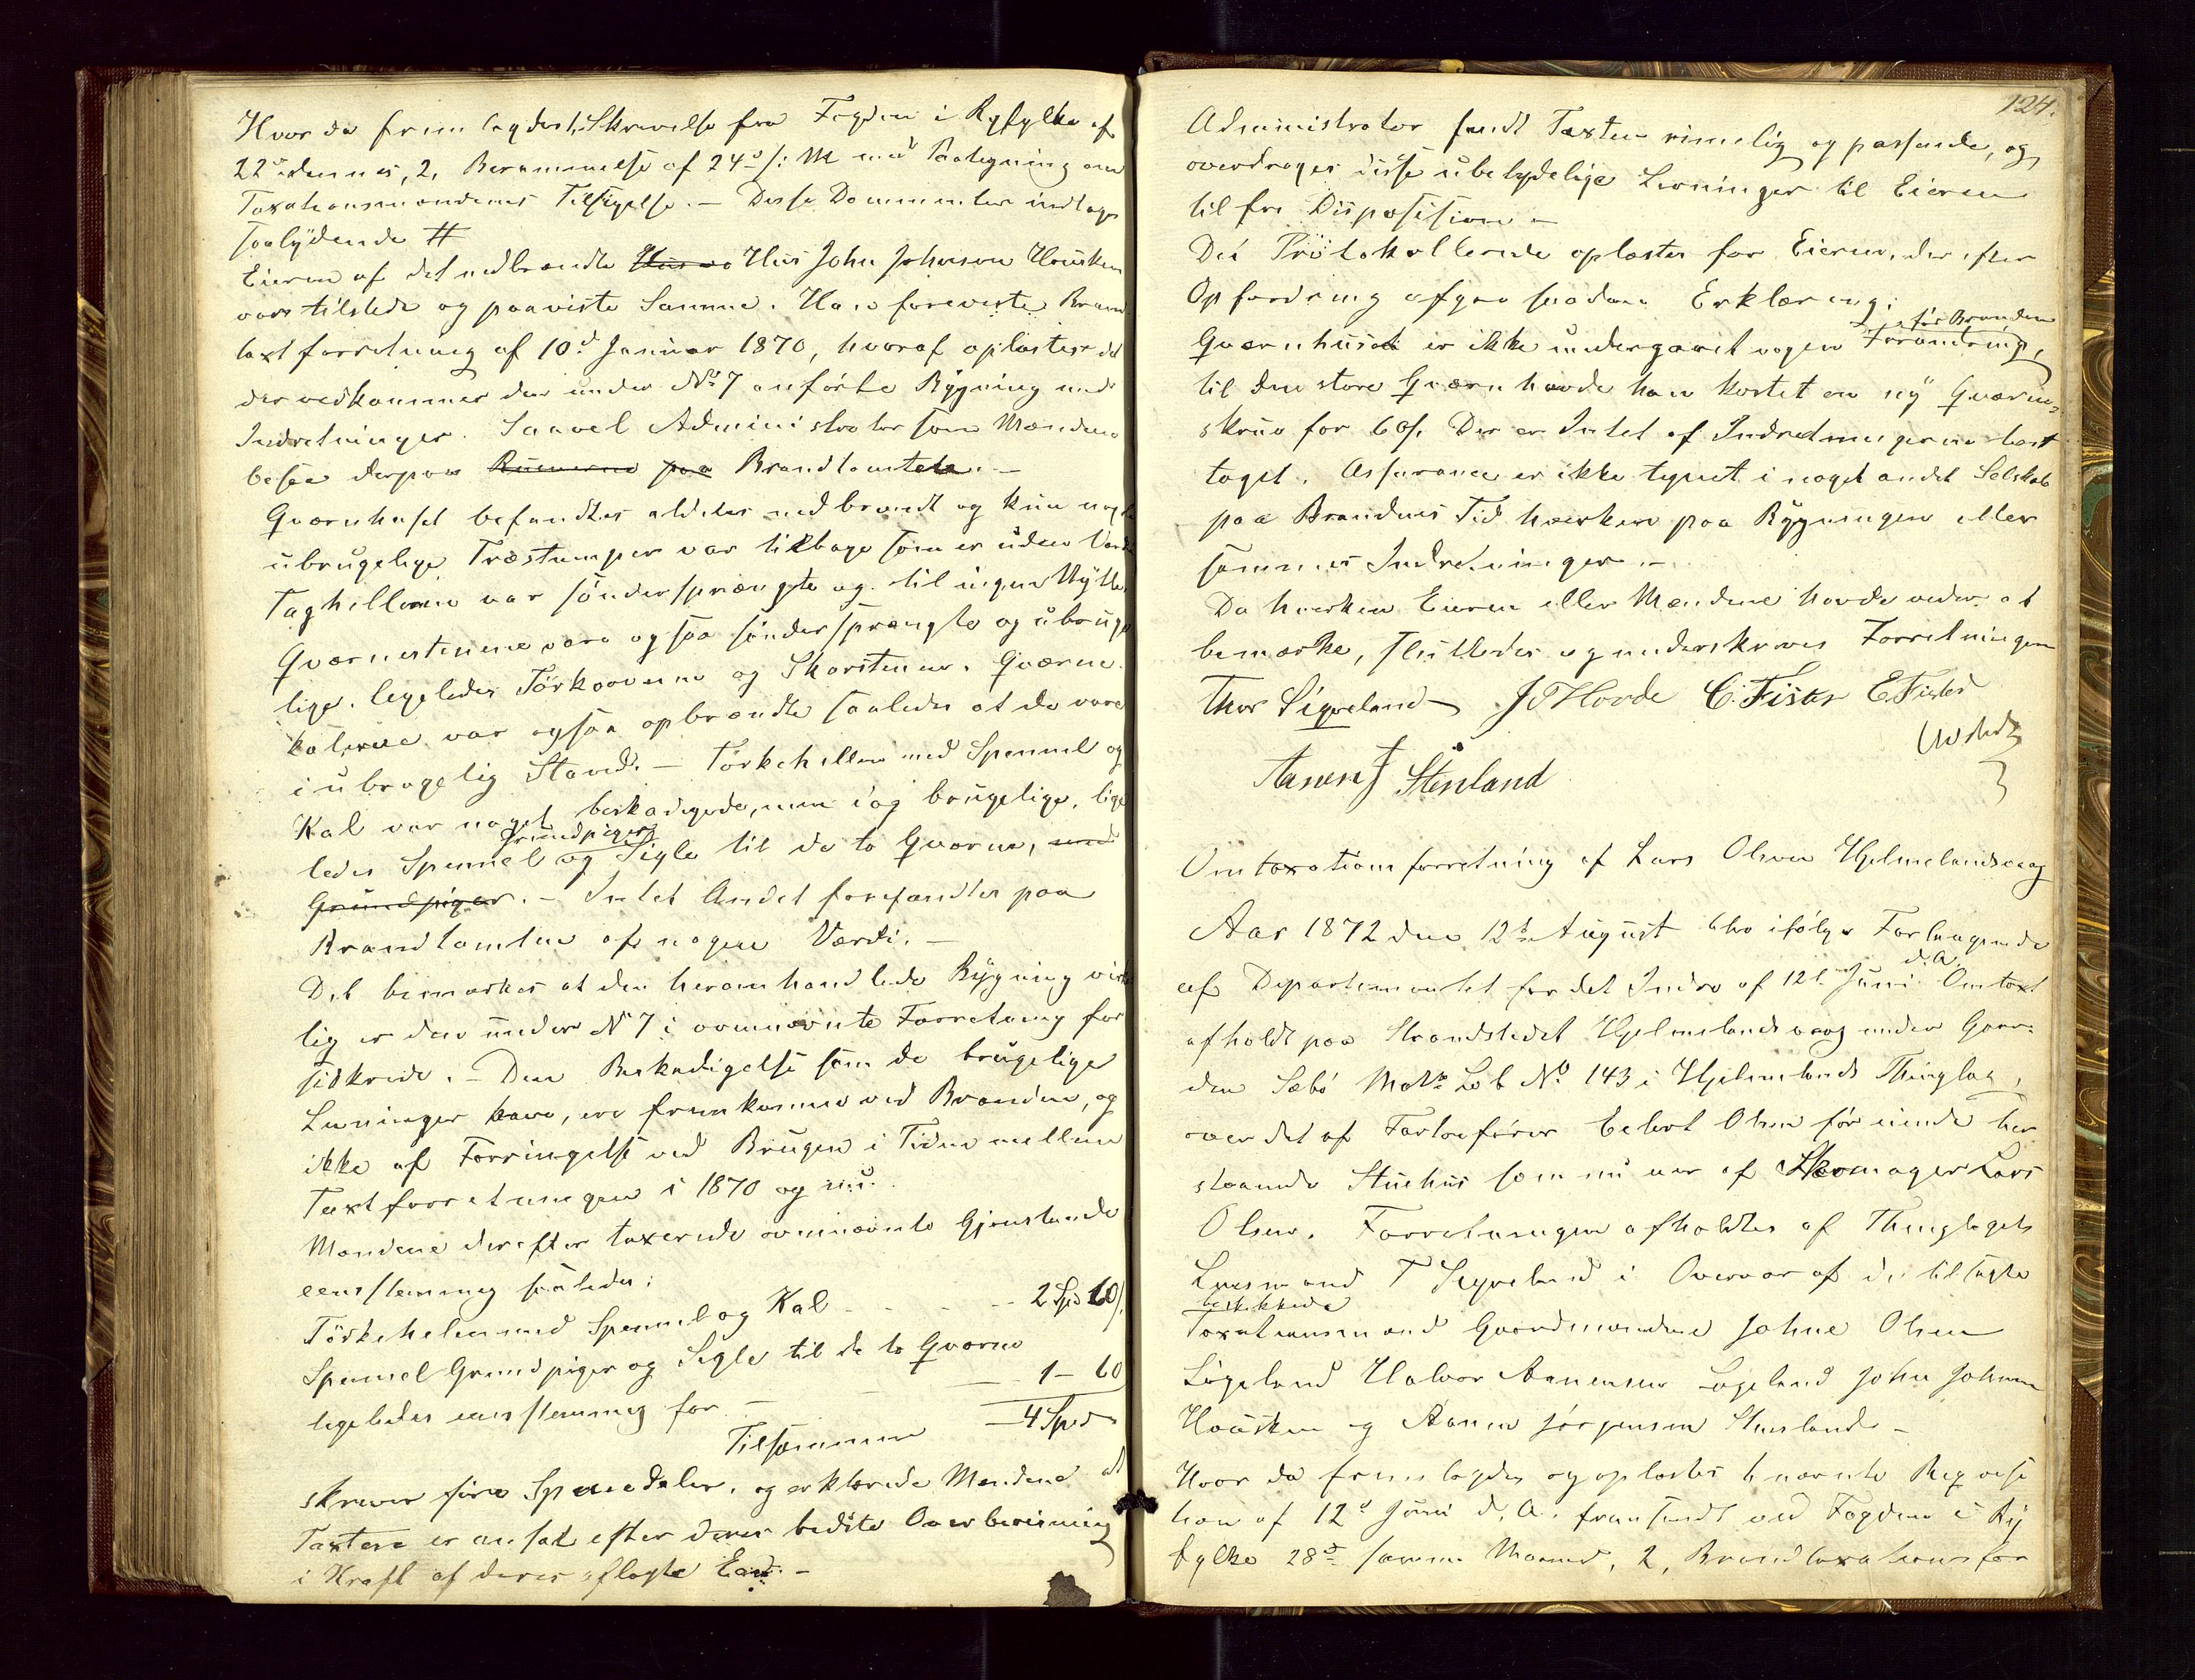 Hvor da fremlagdes 1, Skrivelse fra Fogden i Ryfylke af
22de dennes, 2, Berammelse af 24de s: M med Paategning om
Taxationsmændenes Tilsigelse. – Disse Documenter indtages
saalydende #
Eieren af det nedbrændte Hus John Johnson Housken
vare tilstede og paaviste Samme. Han foreviste Brand
taxtforretning af 10d Januar 1870, hvoraf oplæstes det
der vedkommer den under No 7 anførte Bygning med
Indretninger. Saavel Administrator som Mændene
besaa derpaa Ruinerne paa Brandtomtele. –
Qværnhuset befandtes aldeles nedbrændt og kun nogle
ubrugelige Træstumper var tilbage som er uden Værdi
Taghellerne var søndersprængte og til ingen Nytte.
Qværnestenene vare ogsaa søndersprængte og ubruge
lige. ligeledes Törkeovnene og Skorstenene. Qværne
kallerne var ogsaa opbrændte saaledes at de vare
i ubrugelig Stand. – Törkehellen med Spennel og
Kal var noget beskadigede, men dog brugelige, lige
Grundpiger
ledes Spennel og Sigle til de to Qværne, med
Grundpiger. – Intet Andet forefandtes paa
Brandtomten af nogen Værdi. –
Det bemærkes at den heromhandlede Bygning virke
lig er den under No 7 i ovennævnte Forretning for
sikrede. – Den Beskadigelse som de brugelige
Levninger have, ere fremkomne ved Branden, og
ikke af Forringelse ved Brugen i Tiden mellem
Taxtforretningen i 1870 og nu.
Mændene derefter taxerede ovennævnte Gjenstande
eenstemmig saaledes:
Törkehelen med Spennel og Kal - - - - 2 Spd 60 /.
Spennel Grundpiger og Sigle til de to Qværne
ligeledes eenstemmig for – 1 – 60
Tilsammen – 4 Spd
skriver fire Speciedaler, og erklærede Mændene at
Taxten er ansat efter deres bedste Overbevisning
i Kraft af deres aflagte Eed. –
124.
Administrator fandt Taxten rimelig og passende, og
overdroges disse ubetydelige Levninger til Eieren
til fri Disposision –
Det Protokollerede oplæstes for Eieren, der efter
Opfordring afgav saadan Erklæring:
før Branden
Qværnhuset er ikke undergaaet nogen Forandring,
til den store Qværn havde han kostet en ny Qværne-
skrue for 60 /. Der er Intet af Indretningerne bort
taget. Assurance er ikke tegnet i noget andet Selskab
paa Brandens Tid hverken paa Bygningen eller
sammes Indretninger. –
Da hverken Eieren eller Mændene havde videre at
bemærke, sluttedes og underskreves Forretningen
Thor Sigveland J T Hovde C. Fister E. Fister
Aanen J Stenland
Omtaxationsforretning af Lars Olsen Hjelmelandsvaag
Aar 1872 den 12te August blev ifølge Forlangende
d. A.
af Departementet for det Indre af 12te Juni Omtaxt
afholdt paa Strandstedet Hjelmelandsvaag under Gaar-
den Sæbø Matr. Löb No 143 i Hjelmelands Thinglag,
over det af Fartøifører Eelert Olsen før eiende her
staaende Stuehus som nu eies af Skomager Lars
Olsen. Forretningen afholdtes af Thinglagets
Lensmand T Sigveland i Overvær af de tilsagte
beskikkede
Taxationsmænd Gaardmændene Johne Olsen
Sigeland Halvor Aanensen Sigeland John Johnsen
Housken og Aanen Jörgensen Stensland –
Hvor da fremlagdes og oplæstes 1 nævnte Reqvisi
tion af 12te Juni d. A. fremsendt ved Fogden i Ry
fylke 28de samme Maaned, 2, Brandtaxationsfor